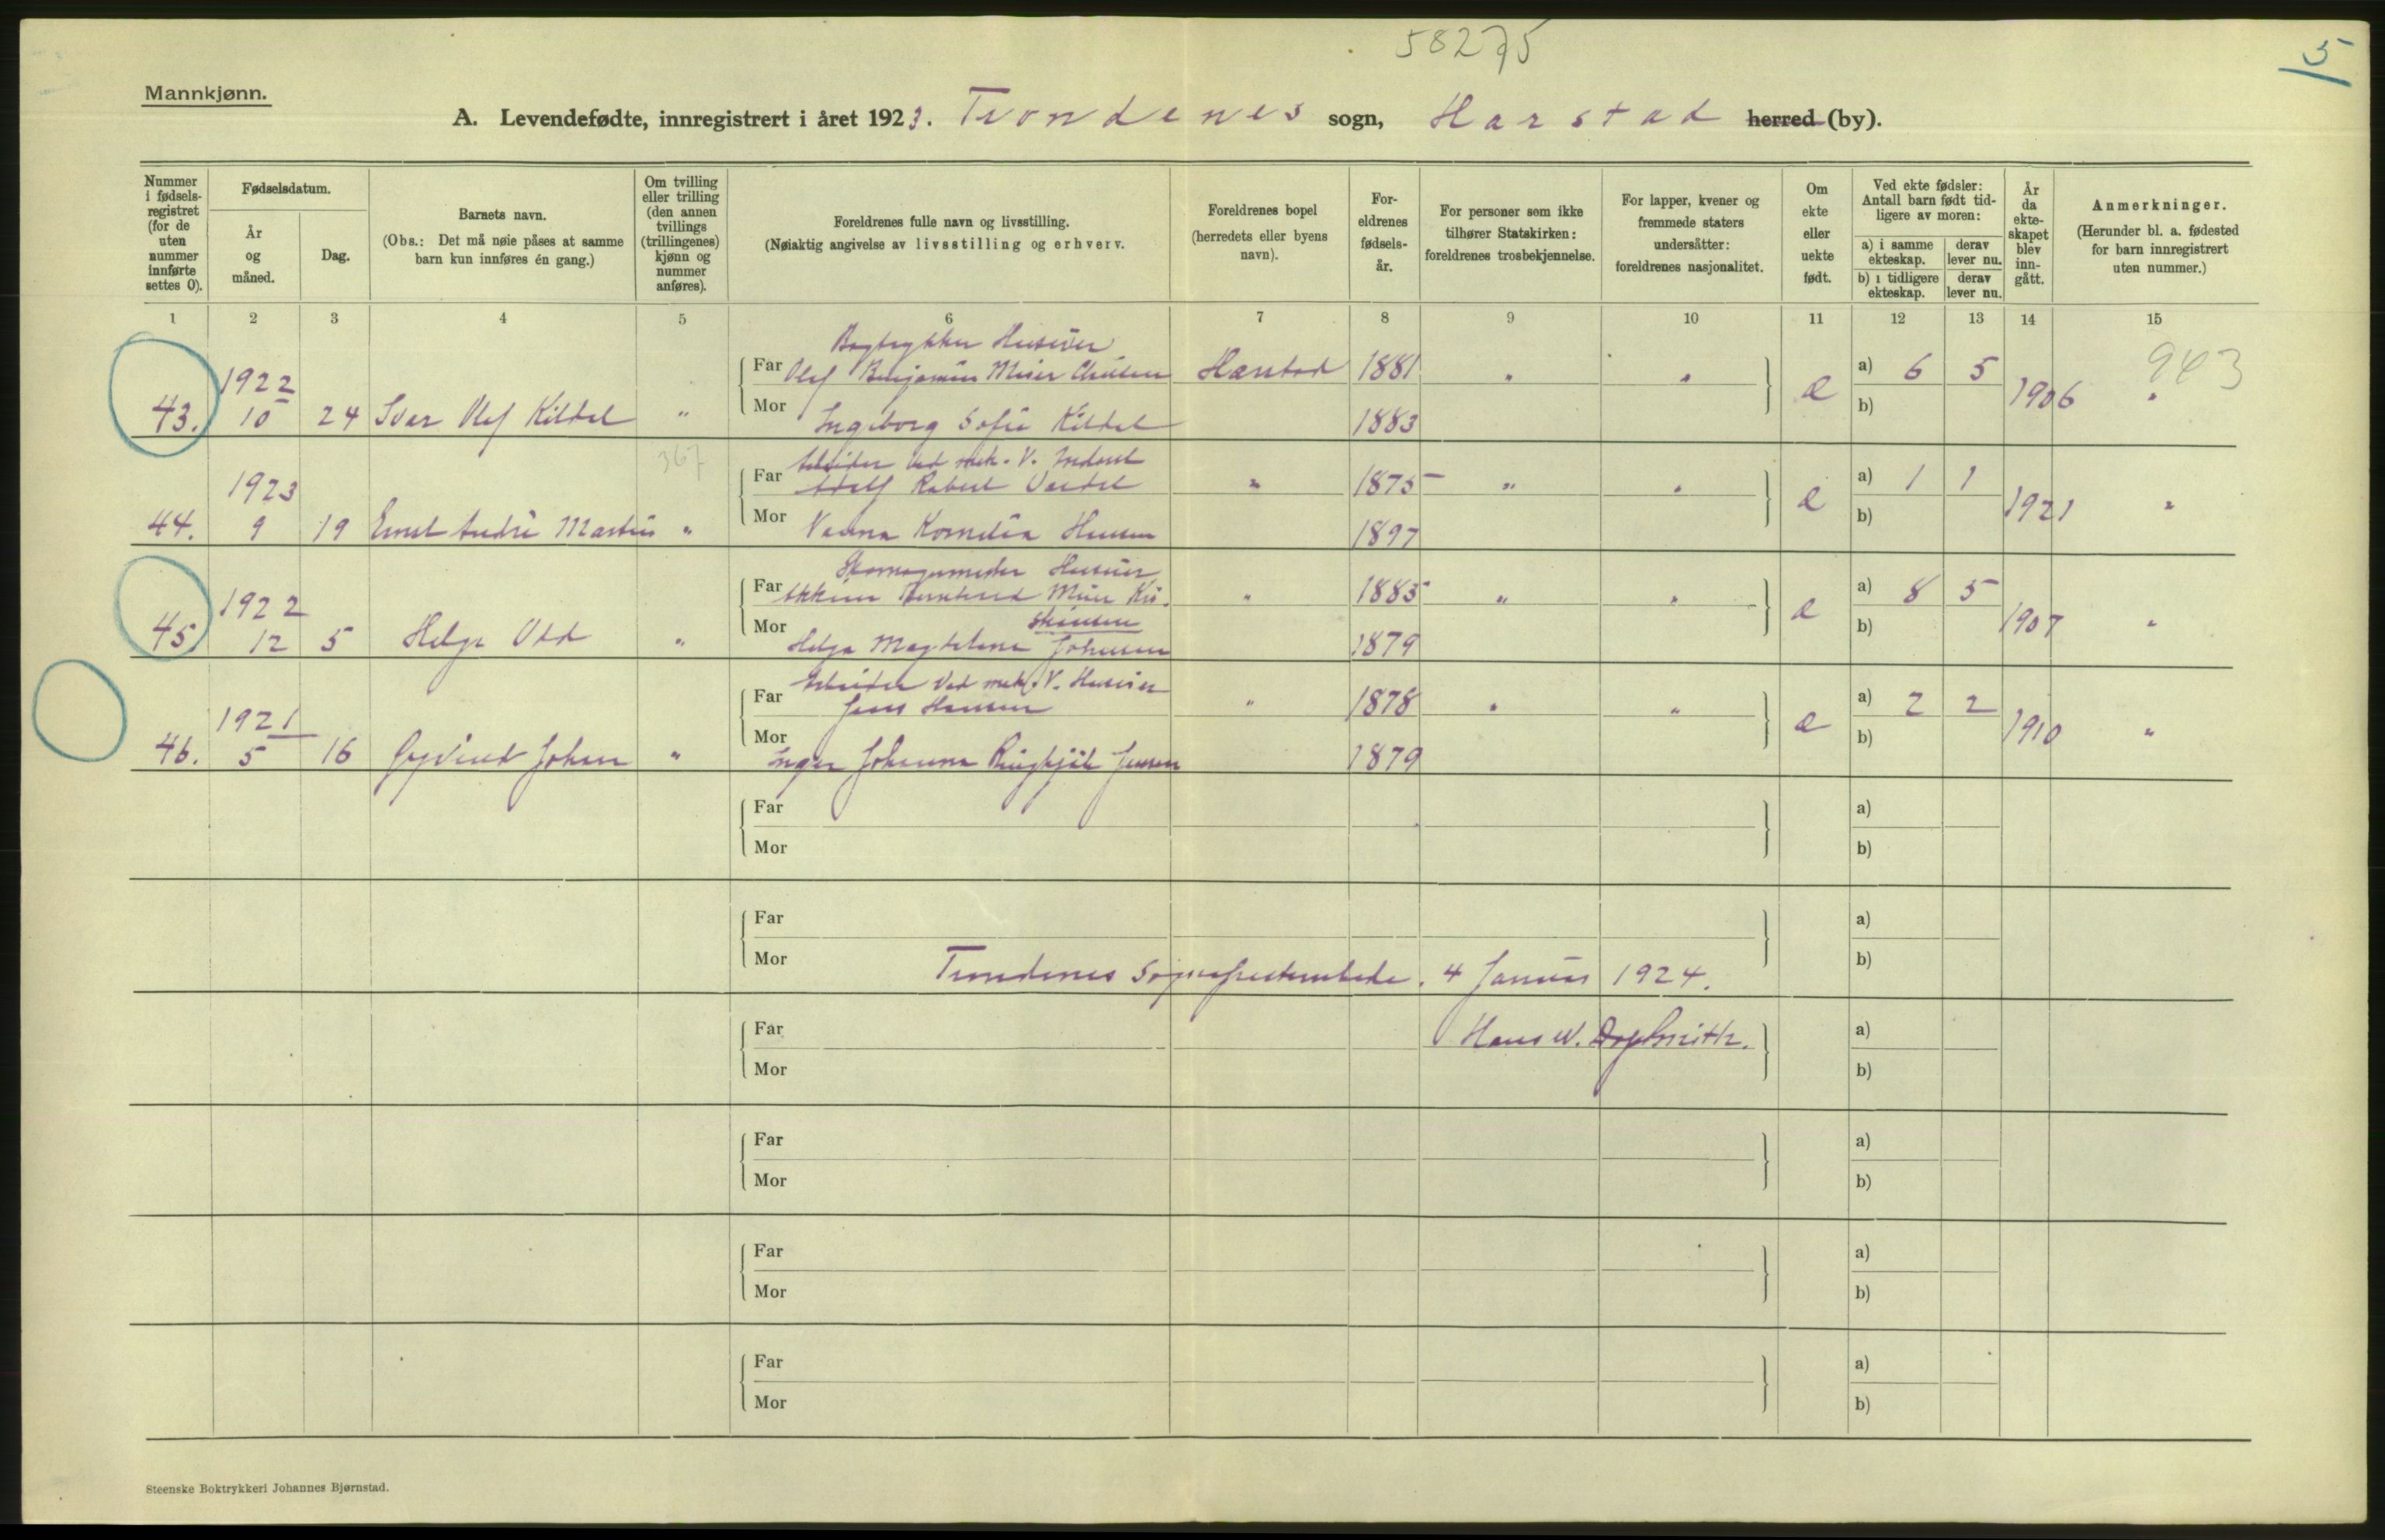 58275
5
Mannkjønn.
A. Levendefødte, innregistrert i året 1923. Trondenes sogn, Harstad herred (by).
Nummer i fødsels-registret (for de uten nummer innførte settes 0).
Fødselsdatum.
År og måned.
Dag.
Barnets navn.
(Obs.: Det må nøie påses at samme barn kun innføres én gang.)
Om tvilling eller trilling (den annen tvillings (trillingenes) kjønn og nummer anføres).
Foreldrenes fulle navn og livsstilling.
(Nøiaktig angivelse av livsstilling og erhverv.
Foreldrenes bopel (herredets eller byens navn).
For-eldrenes fødsels-år.
For personer som ikke tilhører Statskirken: foreldrenes trosbekjennelse.
For lapper, kvener og fremmede staters undersåtter: foreldrenes nasjonalitet.
Om ekte eller uekte født.
Ved ekte fødsler: Antall barn født tid-ligere av moren:
a) i samme ekteskap. derav lever nu.
b) i tidligere ekteskap. derav lever nu.
År da ekte-skapet blev inn-gått.
Anmerkninger.
(Herunder bl. a. fødested for barn innregistrert uten nummer.)
1 2 3 4 5 6 7 8 9 10 11 12 13 14 15
Bogtrykker Huseier
1922 Far Olef Benjamin Meier Harstad 1881 " " a) 6 5 943
43. 10 24 Ivar Olef Kildal " Mor Ingeborg Sofie Kildal 1883 e b) 1906 "
367
Arbeider ved mek. V.
1923 Far Adolf Robert " 1875 " " a) 1 1
44. 9 19 Ernst Andre Martin " Mor Kornelia Hansen 1897 e b) 1921 "
Skomagermester Huseier
1922 Far " 1885 " " a) 8 5
45 12 5 Helge Odd " Mor Helga Magdalena Johansen 1879 e b) 1907 "
Arbeider ved mek. V. Huseier
1921 Far Jens Hansen " 1878 " " a) 2 2
46. 5 16 Gøyvind Johan " Mor Inger Johanna Jensen 1879 e b) 1910 "
Far a)
Mor b)
Far a)
Mor b)
Trondenes Sogneprestembede. 4 Januar 1924.
Far Hans W. a)
Mor b)
Far a)
Mor b)
Far a)
Mor b)
Far a)
Mor b)
Steenske Boktrykkeri Johannes Bjørnstad.